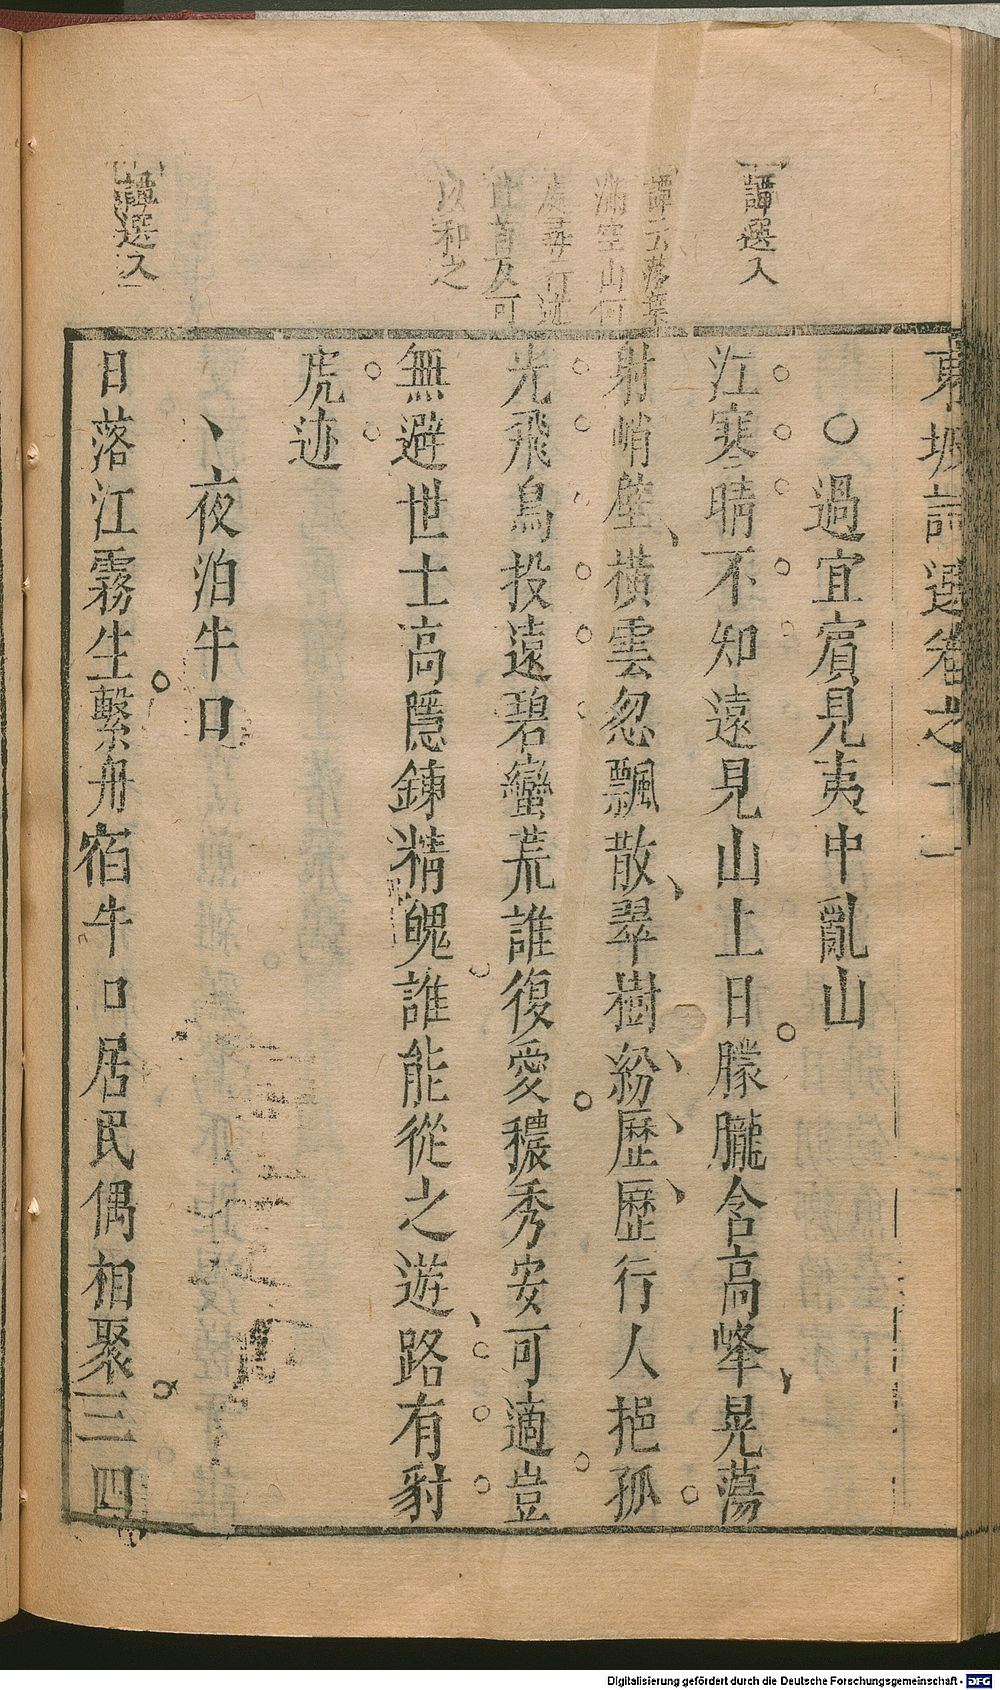 東坡詩選卷之十一
譚選入
○過宜賓見夷中亂山
江寒晴不知遠見山上日朦朧含高峰晃蕩
射峭壁橫雲忽飄散翠樹紛歷歷行人挹孤
光飛鳥投遠碧蠻荒誰復愛穠秀安可適豈
無避世士高隱鍊精魄誰能從之遊路有豺
虎迹
譚云落葉
滿空山何
處尋行迹
此首可
以和之
、夜泊牛口
譚選入
日落江霧生繫舟宿牛口居民偶相聚三四
Digitalisierung gefördert durch die Deutsche Forschungsgemeinschaft - DFG